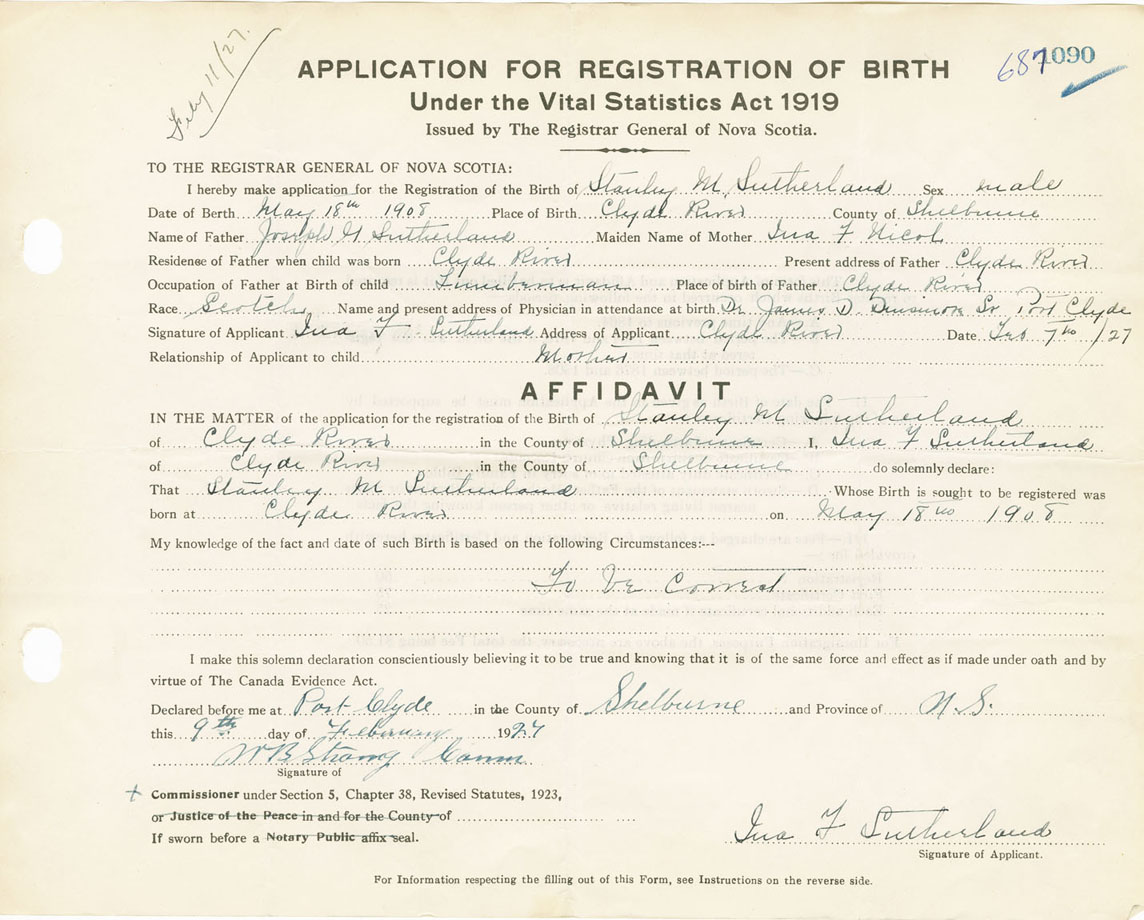 Feby 11/27.
687 1090
APPLICATION FOR REGISTRATION OF BIRTH
Under the Vital Statistics Act 1919
Issued by The Registrar General of Nova Scotia.
TO THE REGISTRAR GENERAL OF NOVA SCOTIA:
I hereby make application for the Registration of the Birth of Stanley M Sutherland Sex male
Date of Berth May 18th 1908 Place of Birth Clyde River County of Shelburne
Name of Father Joseph Sutherland Maiden Name of Mother Ina F Nicol
Residense of Father when child was born Clyde River Present address of Father Clyde River
Occupation of Father at Birth of child Limberman Place of birth of Father Clyde River
Race Scotch Name and present address of Physician in attendance at birth Dr James D. Densmore Sr Port Clyde
Signature of Applicant Ina F. Sutherland Address of Applicant Clyde River Date Feb 7th /27
Relationship of Applicant to child Mother
AFFIDAVIT
IN THE MATTER of the application for the registration of the Birth of Stanley M Sutherland
of Clyde River in the County of Shelburne I, Ina F Sutherland
of Clyde River in the County of Shelburne do solemnly declare:
That Stanley M Sutherland Whose Birth is sought to be registered was
born at Clyde River on May 18th 1908
My knowledge of the fact and date of such Birth is based on the following Circumstances:---
To be Correct
I make this solemn declaration conscientiously believing it to be true and knowing that it is of the same force and effect as if made under oath and by
virtue of The Canada Evidence Act.
Declared before me at Port Clyde in the County of Shelburne and Province of N.S.
this 9th day of February 1927
WB Strong Comm
Signature of
+ Commissioner under Section 5, Chapter 38, Revised Statutes, 1923,
or Justice of the Peace in and for the County of
If sworn before a Notary Public affix seal.
Ina F Sutherland
Signature of Applicant.
For Information respecting the filling out of this Form, see Instructions on the reverse side.